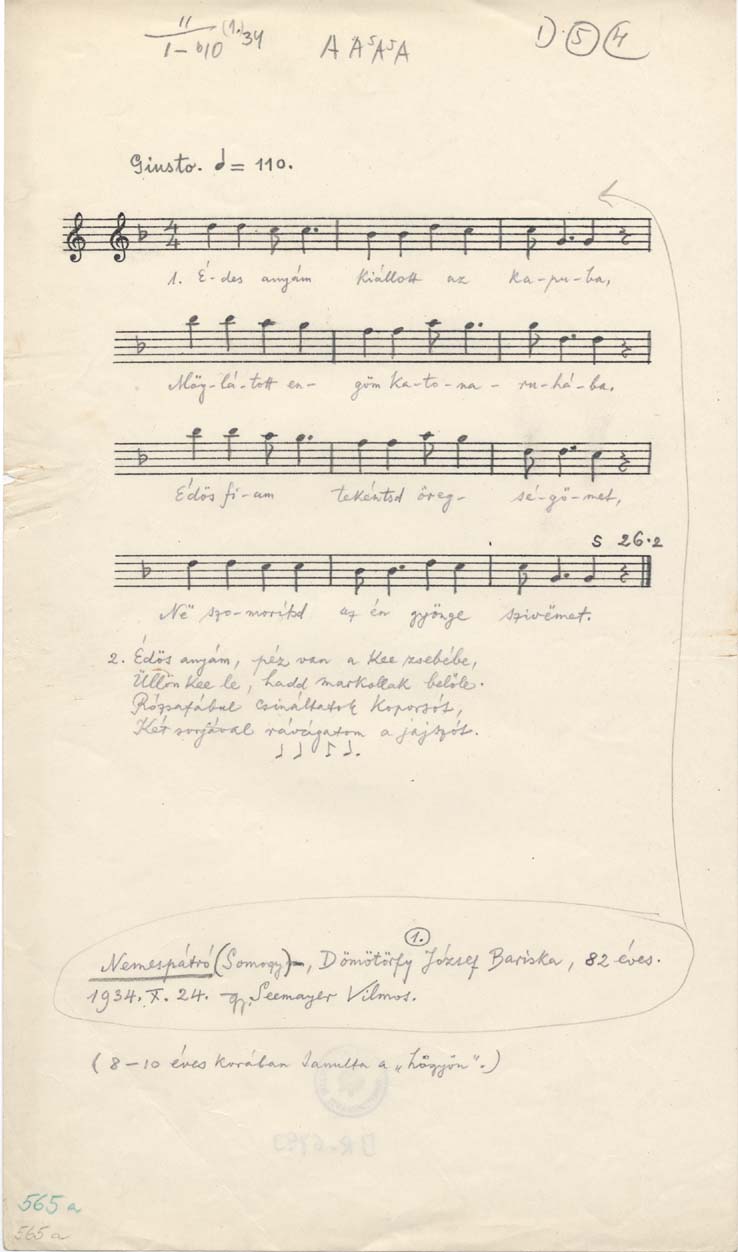 11 (1.) 34
1-b10
A A⁵ A⁵ A
1) 5 4
Giusto. = 110.
4
4
1. É-des anyám kiállott az ka-pu-ba,
Mög-lá-tott en- göm ka-to-na- ru-há-ba.
Édös fi-am tekéntsd öreg- sé-gö-met,
S 26.2
Në szo-morítsd az én gyönge szivemet.
2. Édös anyám, péz van a kee zsebébe,
Üllön kee le, hadd markollak belőle.
Rózsafábul csináltatok koporsót,
Két sorjával rávágatom a jajszót.
1.
Nemespátró (Somogy), Dömötörfy József Bariska, 82 éves.
1934. X. 24. gy. Seemayer Vilmos.
(8-10 éves korában tanulta a „högyön".)
565 a
565 a